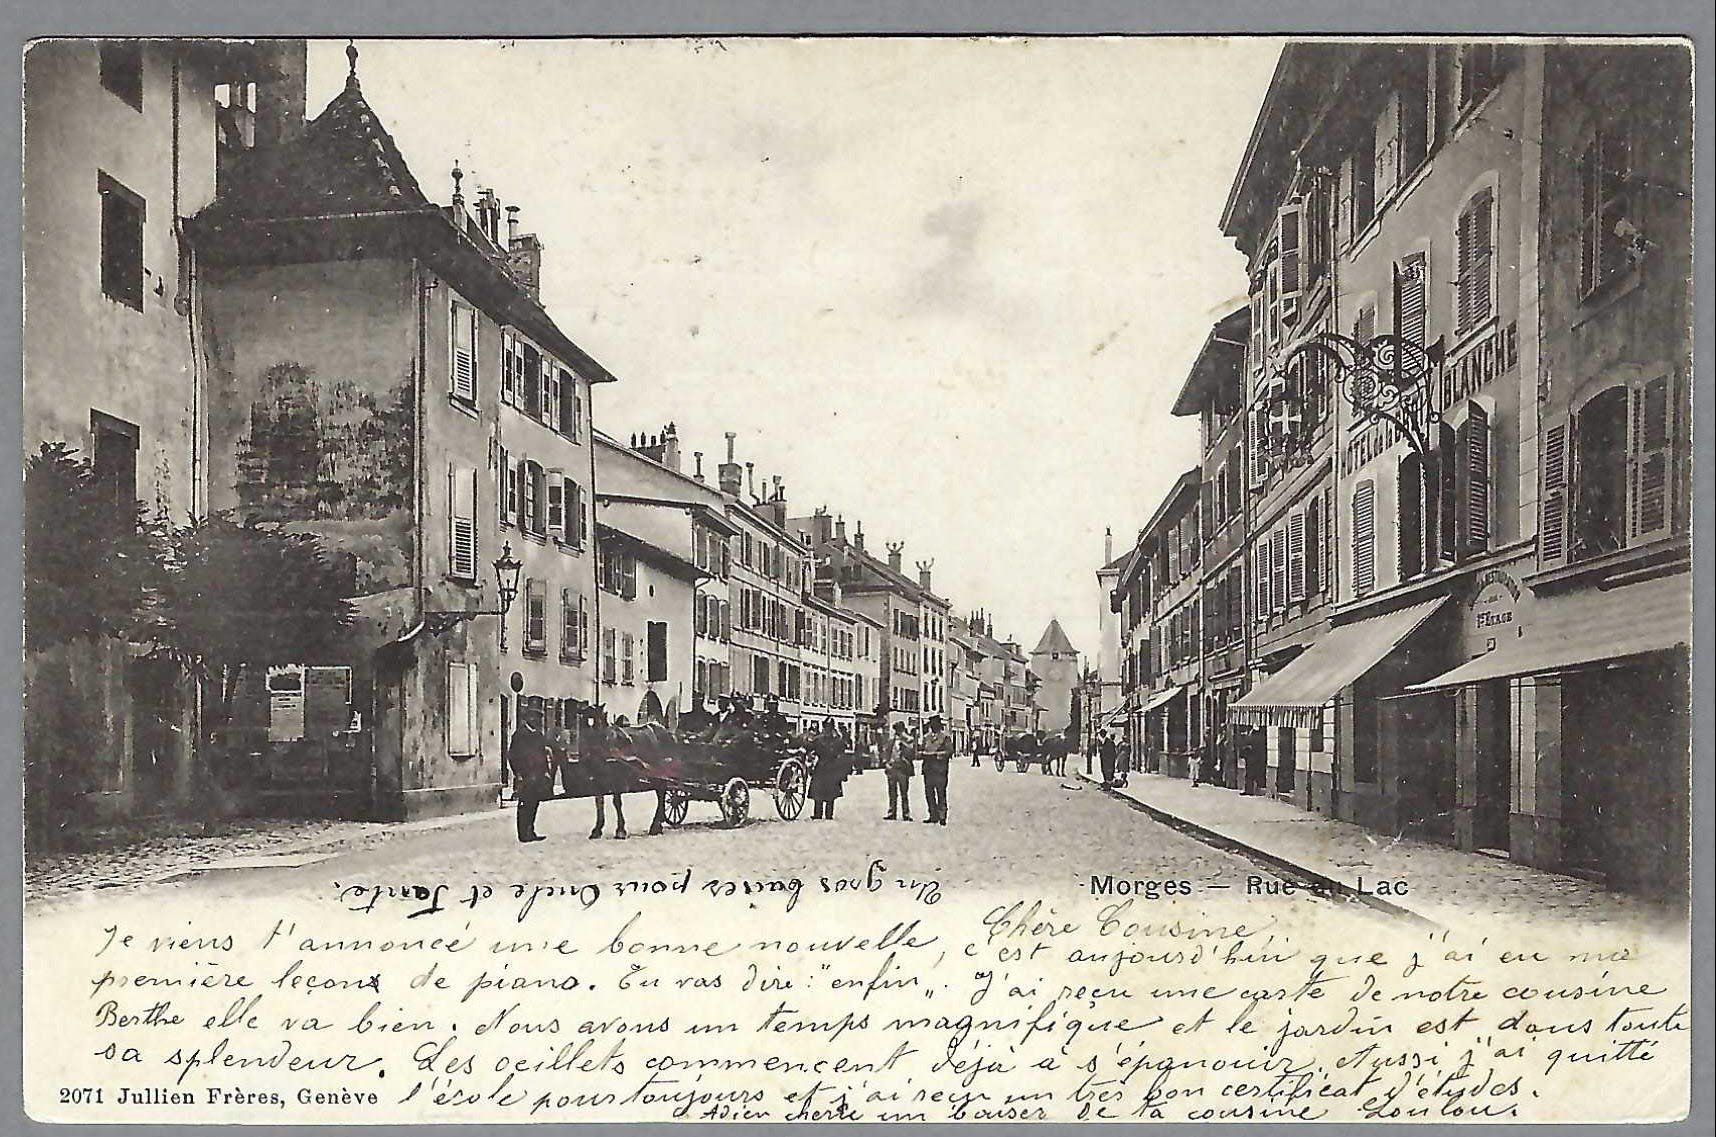 HOTEL DE LA CROIX BLANCHE
RESTAURANT
AU
1er ETAGE
Un gros baiser pour Oncle et Tante.
Morges — Rue du Lac
Chère Cousine
Je viens t'annoncé une bonne nouvelle, c'est aujourd'hui que j'ai eu ma
première leçon de piano. Tu vas dire: "enfin". J'ai reçu une carte de notre cousine
Berthe elle va bien. Nous avons un temps magnifique et le jardin est dans toute
sa splendeur. Les oeillets commencent déjà à s'épanouir. Aussi j'ai quitté
l'école pour toujours et j'ai reçu un très bon certificat d'études.
Adieu chère un baiser de ta cousine Loulou.
2071 Jullien Frères, Genève